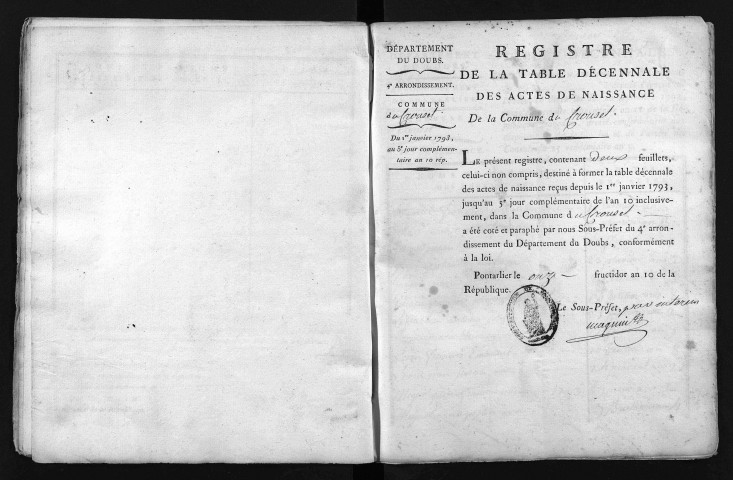 DÉPARTEMENT
DU DOUBS.
4e ARRONDISSEMENT.
COMMUNE
du Crouset
Du 1er janvier 1793,
au 5e jour complémen-
taire an 10 rép.
REGISTRE
DE LA TABLE DÉCENNALE
DES ACTES DE NAISSANCE
De la Commune du Crouset.
LE présent registre, contenant deux feuillets,
celui-ci non compris, destiné à former la table décennale
des actes de naissance reçus depuis le 1er janvier 1793,
jusqu'au 5e jour complémentaire de l'an 10 inclusive-
ment, dans la Commune du Crouset
a été coté et paraphé par nous Sous-Préfet du 4e arron-
dissement du Département du Doubs, conformément
à la loi.
Pontarlier le onze fructidor an 10 de la
République.
Le Sous-Préfet,